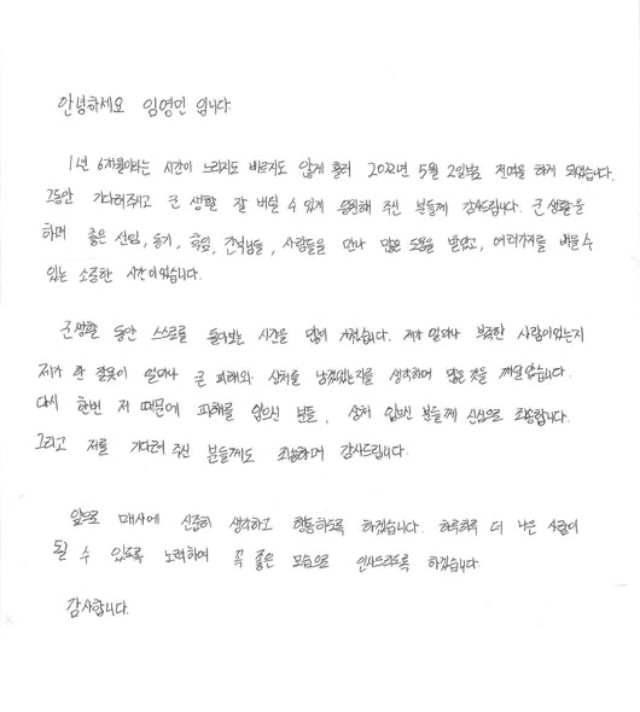 안녕하세요 임영민 입니다.
1년 6개월이라는 시간이 느리지도 빠르지도 않게 흘러 2022년 5월 2일부로 전역을 하게 되었습니다.
그동안 기다려주시고 군 생활 잘 버틸 수 있게 응원해 주신 분들께 감사드립니다. 군 생활을
하며 좋은 선임, 동기, 후임, 간부님들, 사람들을 만나 많은 도움을 받았고, 여러가지를 배울 수
있는 소중한 시간이었습니다.
군생활 동안 스스로를 돌아보는 시간을 많이 가졌습니다. 제가 얼마나 부족한 사람이었는지
제가 한 잘못이 얼마나 큰 피해와 상처를 남겼었는지를 생각하며 많은 것을 깨달았습니다.
다시 한번 저 때문에 피해를 입으신 분들, 상처 입으신 분들께 진심으로 죄송합니다.
그리고 저를 기다려 주신 분들께도 죄송하며 감사드립니다.
앞으로 매사에 신중히 생각하고 행동하도록 하겠습니다. 하루하루 더 나은 사람이
될 수 있도록 노력하여 꼭 좋은 모습으로 인사드리도록 하겠습니다.
감사합니다.